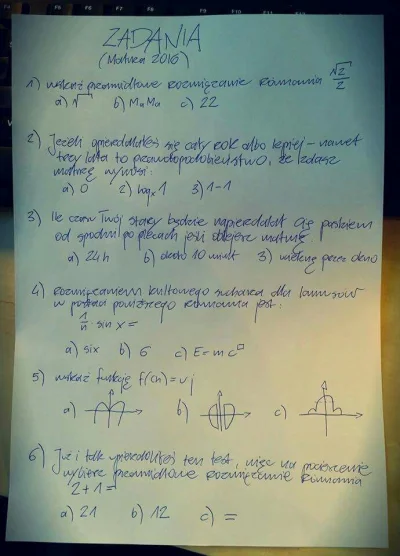 ZADANIA
(Matura 2016)
1) wskaż prawidłowe rozwiązanie równania √2/2
a) √ b) MaMa c) 22
2) Jeżeli opierdalałeś się cały rok albo lepiej – nawet
trzy lata to prawdopodobieństwo, że zdasz
maturę wynosi:
a) 0 2) logₓ1 3) 1-1
3) Ile czasu Twój stary będzie napierdalał Cię paskiem
od spodni po plecach jeśli oblejesz maturę
a) 24h b) około 10 minut 3) wylecę przez okno
4) rozwiązaniem kultowego suchara dla lamusów
w postaci poniższego równania jest:
1/n sin x =
a) six b) 6 c) E=mc□
5) wskaż funkcję f(Ch)=uj
a) b) c)
6) Już i tak upierdoliłeś ten test, więc na pocieszenie
wybierz prawidłowe rozwiązanie równania
2+1=
a) 21 b) 12 c) =